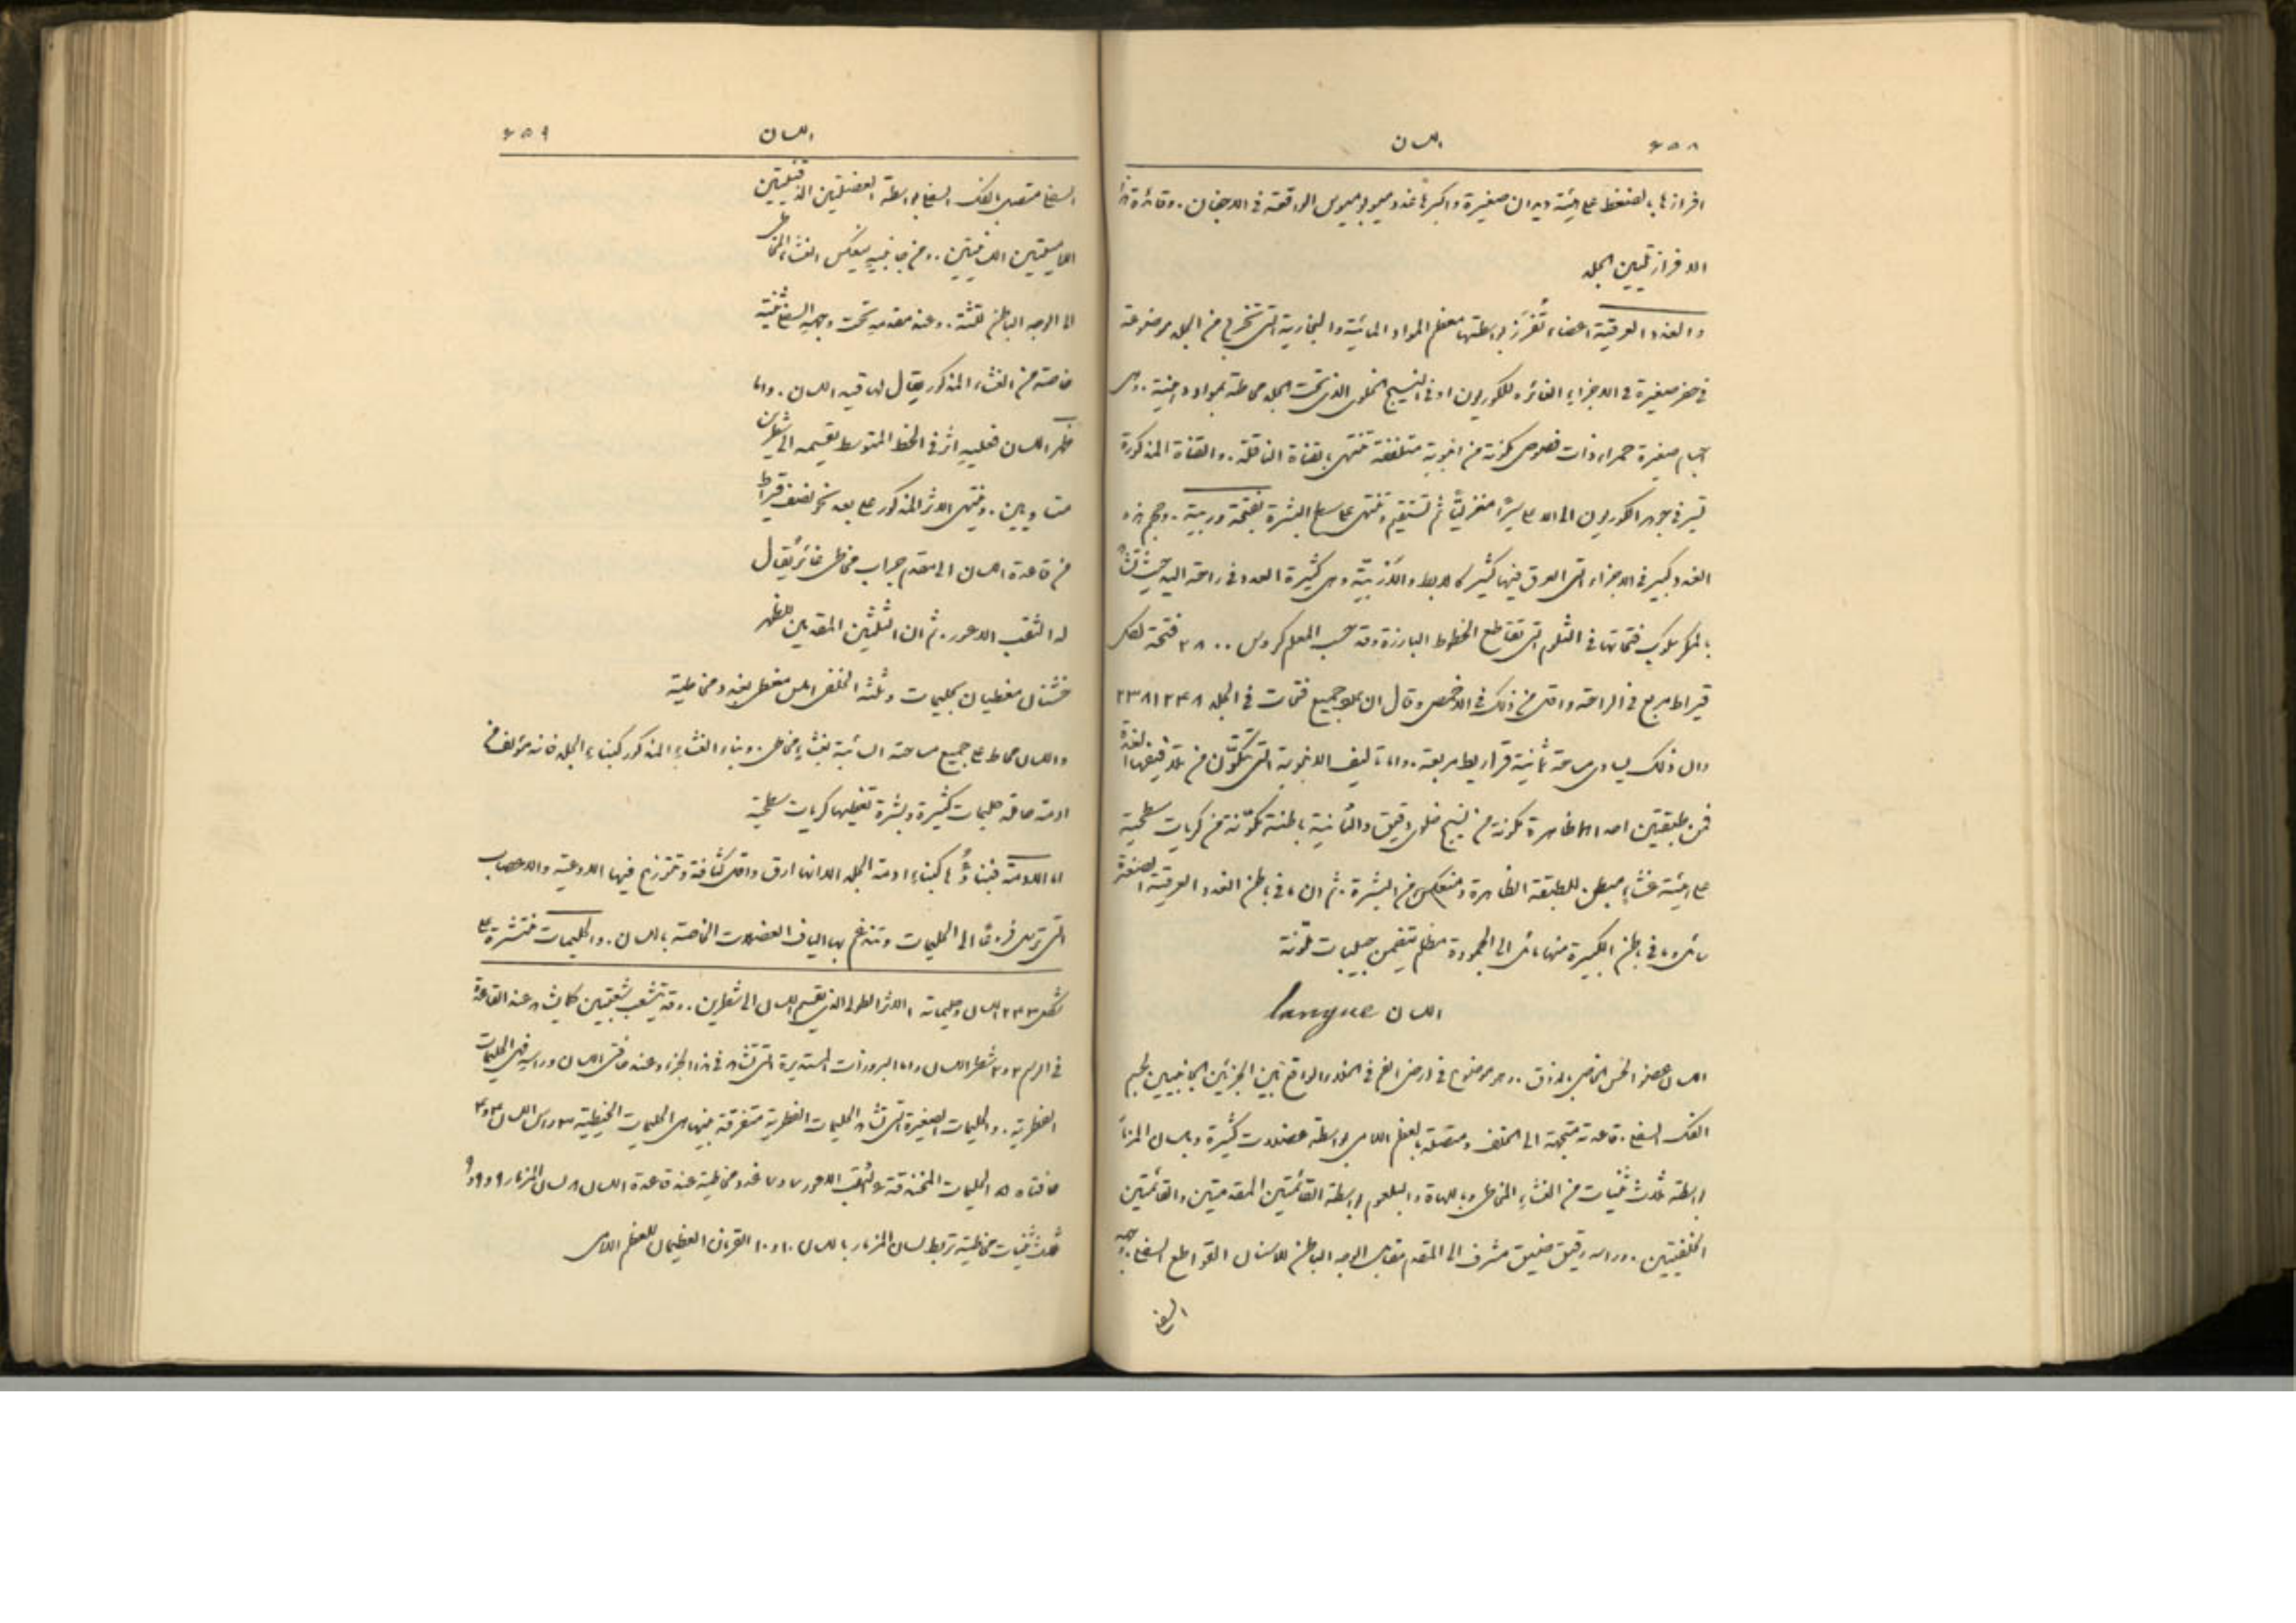 ٤٥٨ اللسان
افرازها بالضغط على هيئة ديدان صغيرة واكبرها غدد ميبوميوس الواقعة في الاجفان. وفائدة هذا
الافراز تليين الجلد
والغدد العرقية اعضاء تُفرَز بواسطتها معظم المواد المائية والبخارية التي تخرج من الجلد موضوعة
في حفر صغيرة في الاجزاء الغائرة للكوريون او في النسيج الخلوي الذي تحت الجلد محاطة بمواد دهنية. وهي
اجسام صغيرة حمراء ذات فصوص مكونة من انبوبة متلففة تنتهي بالقناة الناقلة. والقناة المذكورة
تسير في جوهر الكوريون الى الاعلى سيرًا منفرليًّا ثم تستقيم وتنتهي على سطح البشرة بفتحة وربية. وحجم هذه
الغدد كبير في الاجزاء التي العرق فيها كثير كالابط والأُرْبيَّة وهي كثيرة العدد في راحة اليد حيث تُشاهَد
بالمكرسكوب فتحاتها في الثلوم التي تقاطع الخطوط البارزة وقد حسب المعلم كروس ٢٨٠٠ فتحة لكل
قيراط مربع في الراحة واقل من ذلك في الاخمص وقال ان مجموع جميع فتحات في الجلد ٢٣٨١٢٤٨
وان ذلك يساوي مساحة ثمانية قراريط مربعة. واما تاليف الانبوبة التي تتكوّن من تلافيفها الغدة
فمن طبقتين احداهما ظاهرة مكونة من نسيج خلوي دقيق والثانية باطنة مكوّنة من كريات سطحية
على هيئة غشاءٍ مبطن للطبقة الظاهرة ومنعكس من البشرة. ثم ان ما في باطن الغدد العرقية الصغيرة
سائل وما في باطن الكبيرة منها مائل الى الجمودة مظلم يتضمن حبيبات ملوّنة
اللسان langue
اللسان عضو الحس الخاص بالذوق. وهو موضوع في ارض الفم في الخلاء الواقع بين الجزئين الجانبيين لجسم
الفك السفلي. قاعدته متجهة الى الخلف ومتصلة بالعظم اللامي بواسطة عضلات كثيرة وبلسان المزمار
بواسطة ثلاث ثنيات من الغشاءِ المخاطي وباللهاة والبلعوم بواسطة القائمتين المقدميتين والقائمتين
الخلفيتين. وراسه رقيق ضيق مشرف الى المقدم مقابل الوجه الباطن للاسنان القواطع السفلى. وجهه
السفلي
اللسان ٤٥٩
السفلي متصل بالفك السفلي بواسطة العضلتين الذقنيتين
اللاميتين الذقنيتين.. ومن جانبيه ينعكس الغشاء المخاطي
الى الوجه الباطن للثة. وعند مقدمه تحت وجهه السفلي ثنية
خاصة من الغشاء المذكور يقال لها قيد اللسان. واما
ظهر اللسان فعليه اثر في الخط المتوسط يقسمه الى شطرين
متساويين. وينتهي الاثر المذكور على بعد نحو نصف قيراط
من قاعدة اللسان الى مقدم جراب مخاطي غائر يُقال
له الثقب الاعور. ثم ان الثلثين المقدمين للظهر
خشنان مغطيان بحليمات وثلثه الخلفي املس مغطى بغدد مخاطية
واللسان محاط على جميع مساحته السائبة بغشاءٍ مخاطي. وبناء الغشاءِ المذكور كبناءِ الجلد فانه مؤلف من
ادمة صاقه حليمات كثيرة وبشرة تغطيها كريات سطحية
اما الادمة فبناؤُها كبناءِ ادمة الجلد الا انها ارق واقل كثافة وتتوزع فيها الاوعية والاعصاب
التي ترسل فروعًا الى الحليمات وتندغم بها الياف العضلات الخاصة باللسان. والحليمات منتشرة على
شكل ٢٤٣ اللسان وحليماته ١ الاثر الطولي الذي يقسم اللسان الى شطرين. وقد يتشعب شعبتين كما يشاهد عند القاعدة
في الرسم ٢ و٢ شطرا اللسان واما البروزات المستديرة التي تشاهد في هذا الجزء وعند حافتي اللسان وراسه فهي الحليمات
الفطرية. والحليمات الصغيرة التي تشاهد الحليمات الفطرية متفرقة بينها هي الحليمات الخيطية ٣ راس اللسان ٤ و٤
حافتاه ٥ ٥ الحليمات المخندقة ٦ الثقب الاعور ٧ و٧ غدد مخاطية عند قاعدة اللسان ٨ لسان المزمار ٩ و٩ و٩
ثلاث ثنيات مخاطية تربط لسان المزمار باللسان ١٠ و١٠ القرنان العظيمان للعظم اللامي